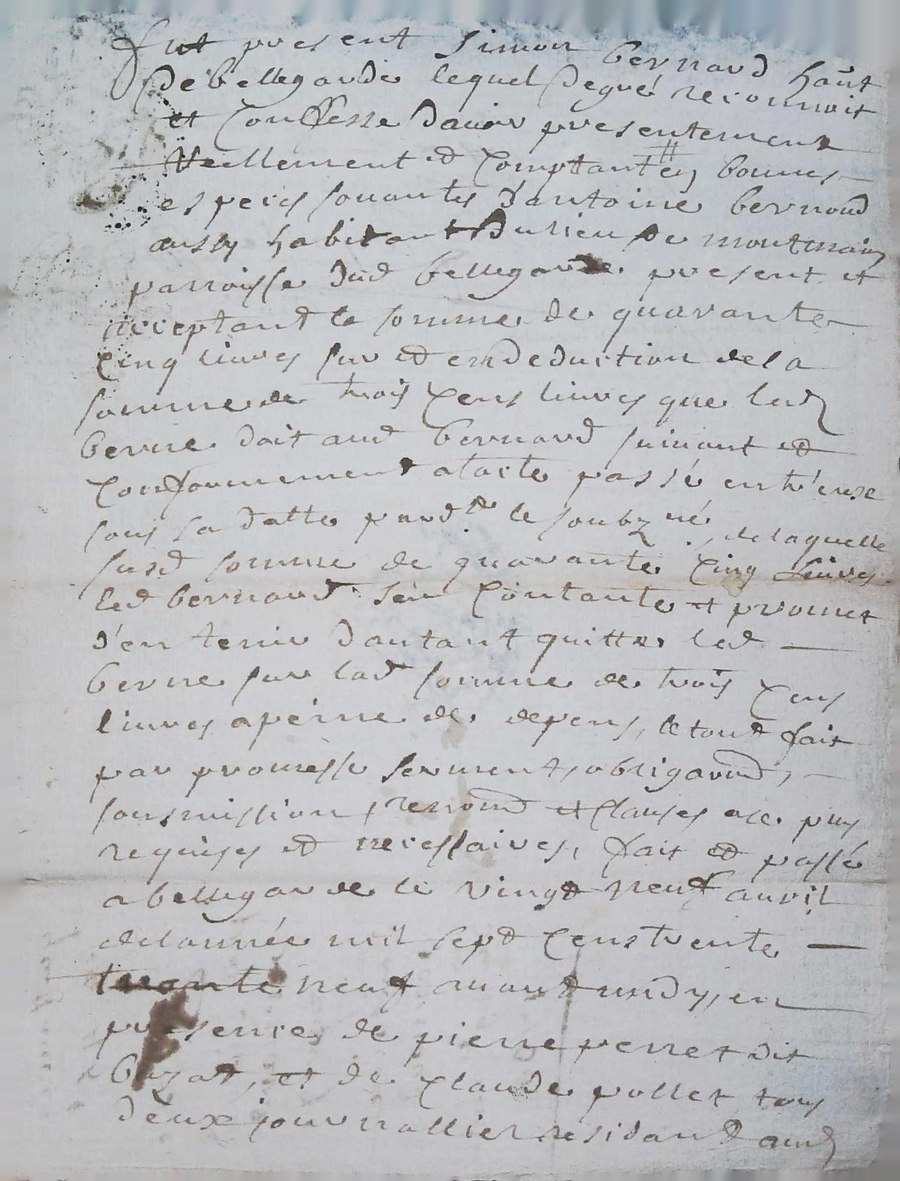 fut present Simon bernard haūt
De bellegarde lequel Degré reconnoit
et Confesse Davoir presentement
Reellement et Comptant en bonnes
especes sonantes Dantoine bernond
aussy habitant Du lieu De montmain
parroisse dud bellegarde present et
acceptant la somme de quarante
Cinq livres sur et en deduction de la
somme de trois Cens livres que led
berne doit aud bernard suivant et
Conformement a lacte passé entre'eux
sous sa datte pard.t le soubz.né, de laquelle
susd somme de quarante Cinq livres
led bernard s'en Contante et promet
d'en tenir dautant quitte led
berne sur lad somme de trois Cens
livres a peine de depens, le tout fait
par promesse serment, obligaond,
sousmission, renond et Clauses ace plus
requises et necessaires, fait et passé
a bellegarde le vingt neuf avril
de lannée mil sept Cens trente
trante neuf avant midy, en
presence de pierre perret dit
bozat, et de Claude pollet tous
deux journallier residant aud